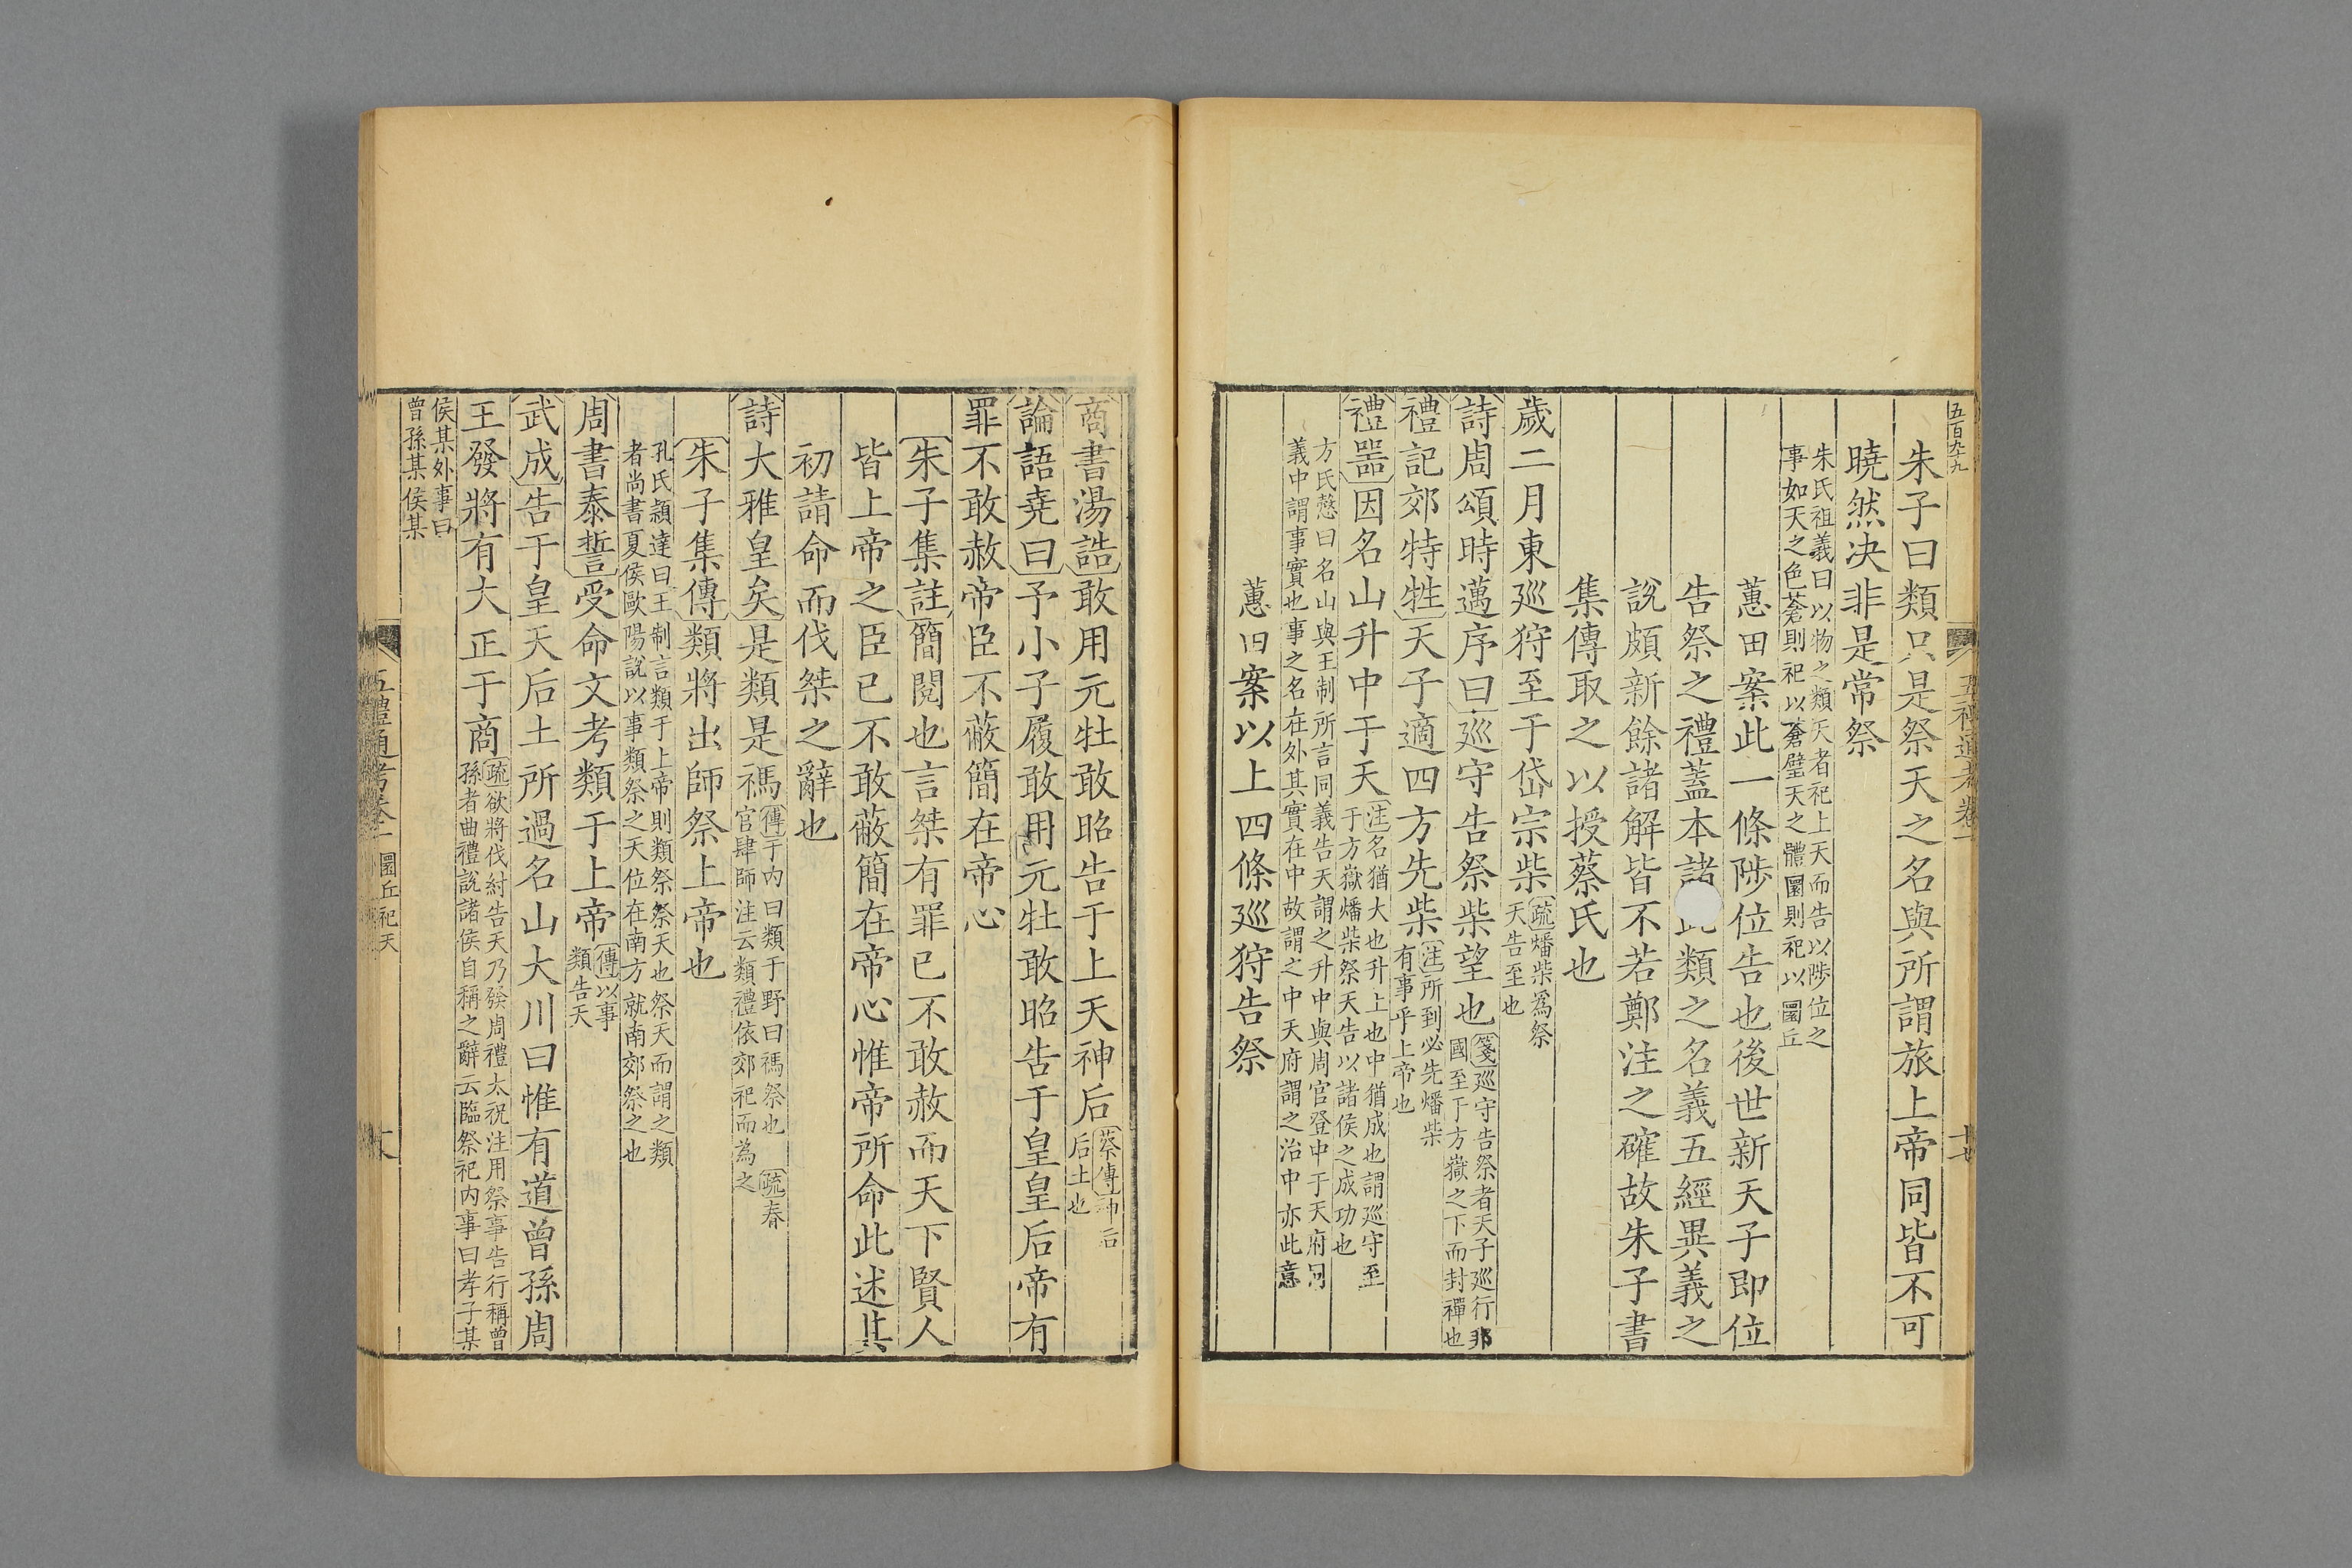 五百九十九
五禮通考卷一
朱子曰類只是祭天之名與所謂旅上帝同皆不可
曉然決非是常祭
朱氏祖義曰以物之類天者祀上天而告以陟位之
事如天之色蒼則祀以蒼璧天之體圜則祀以圜丘
蕙田案此一條陟位告也後世新天子即位
告祭之禮蓋本諸此類之名義五經異義之
說頗新餘諸解皆不若鄭注之確故朱子書
集傳取之以授蔡氏也
歲二月東巡狩至于岱宗柴疏燔柴爲祭
天告至也
詩周頌時邁序曰巡守告祭柴望也箋巡守告祭者天子巡行邦
國至于方嶽之下而封禪也
禮記郊特牲天子適四方先柴注所到必先燔柴
有事乎上帝也
禮器因名山升中于天注名猶大也升上也中猶成也謂巡守至
于方嶽燔柴祭天告以諸侯之成功也
方氏慤曰名山與王制所言同義告天謂之升中與周官登中于天府同
義中謂事實也事之名在外其實在中故謂之中天府謂之治中亦此意
蕙田案以上四條巡狩告祭
商書湯誥敢用元牡敢昭告于上天神后蔡傳神后
后土也
論語堯曰予小子履敢用元牡敢昭告于皇皇后帝有
罪不敢赦帝臣不蔽簡在帝心
朱子集註簡閱也言桀有罪已不敢赦而天下賢人
皆上帝之臣已不敢蔽簡在帝心惟帝所命此述其
初請命而伐桀之辭也
詩大雅皇矣是類是禡傳于內曰類于野曰禡祭也 疏春
官肆師注云類禮依郊祀而為之
朱子集傳類將出師祭上帝也
孔氏穎達曰王制言類于上帝則類祭祭天也祭天而謂之類
者尚書夏侯歐陽說以事類祭之天位在南方就南郊祭之也
周書泰誓受命文考類于上帝傳以事
類告天
武成告于皇天后土所過名山大川曰惟有道曾孫周
王發將有大正于商疏欲將伐紂告天乃發周禮太祝注用祭事告行稱曾
孫者曲禮說諸侯自稱之辭云臨祭祀內事曰孝子某
侯某外事曰
曾孫某侯某
五禮通考卷一 圜丘祀天